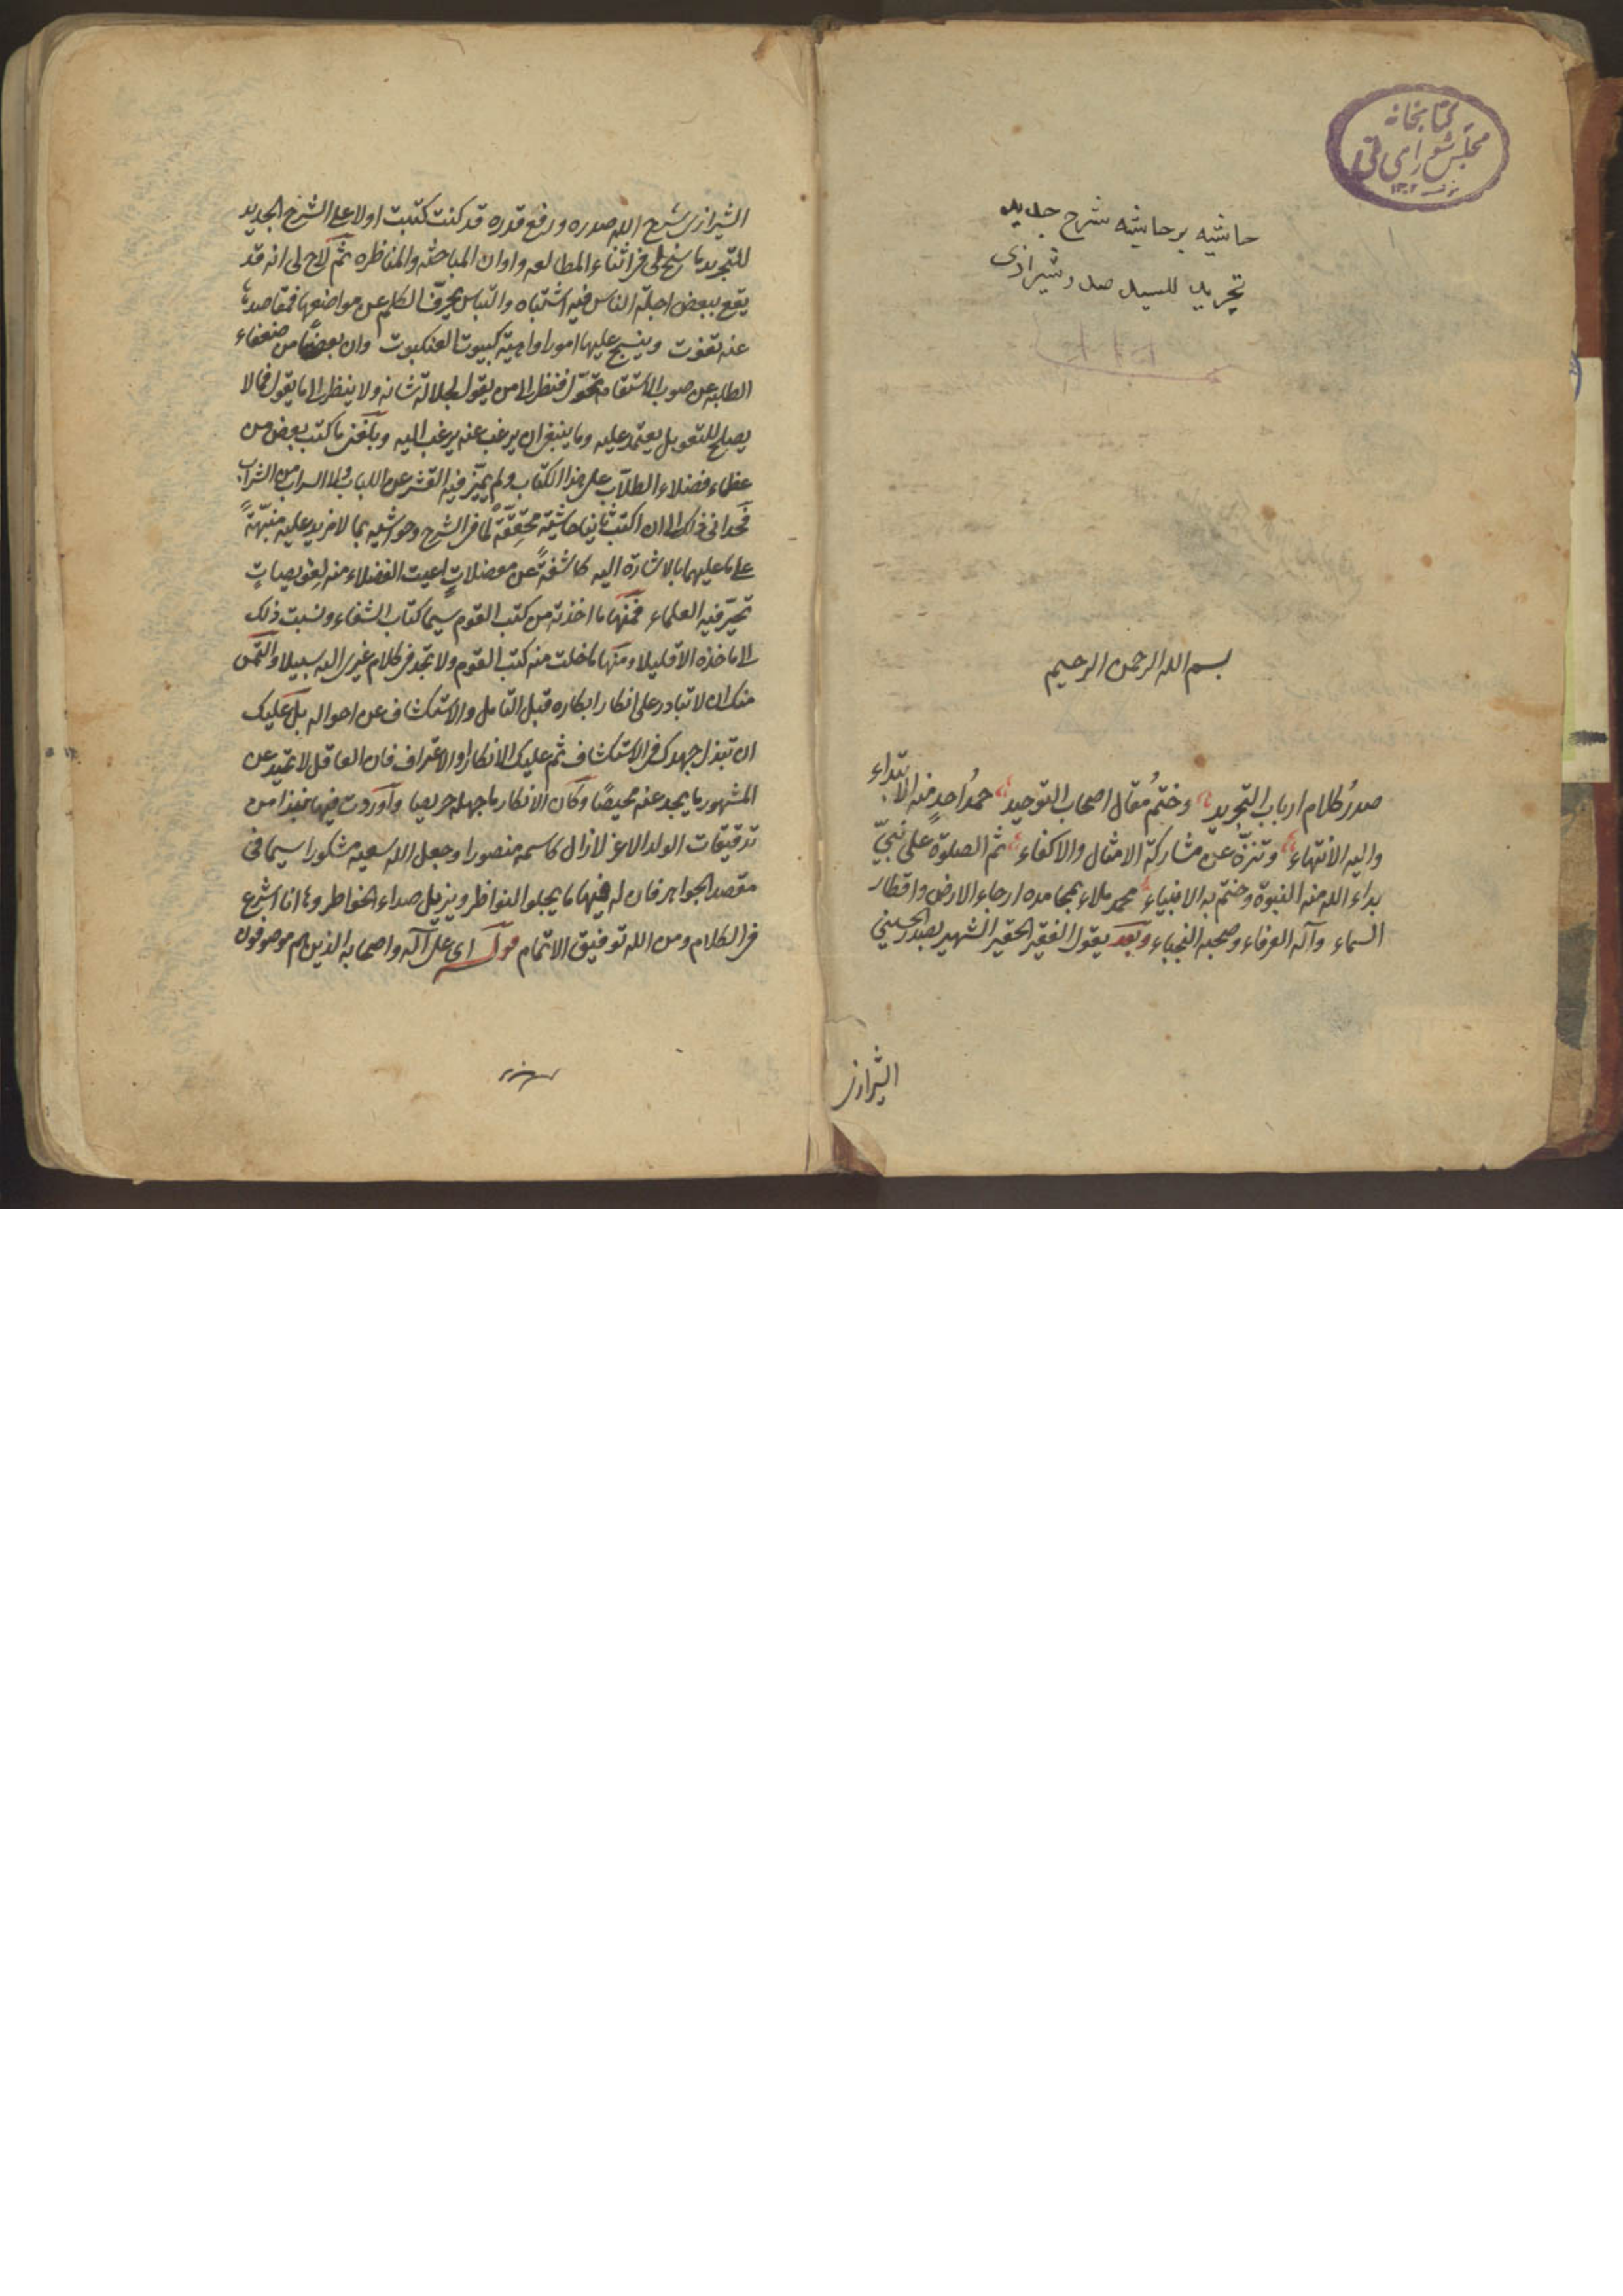 كتابخانه
مجلس شورای ملی
۱۳۰۲
حاشیه بر حاشیه شرح جدید
تجرید للسید صدر شیرازی
بسم الله الرحمن الرحيم
صدرُ كلام ارباب التجريد وختمُ مقال اصحاب التوحيد حمدُ احدٍ منه الابتداء
واليه الانتهاء وتنزّه عن مشاركة الامثال والاكفاء ثم الصلوة على نبيّ
بداء الله منه النبوة وختم به الانبياء محمد ملاء بمحامده ارجاء الارض واقطار
السماء وآله العرفاء وصحبه النجباء وبعد يقول الفقير الحقير الشهير بصدر الحسيني
الشيرازى
الشيرازى شرح الله صدره ورفع قدره قد كنت كتبت اولا على الشرح الجديد
للتجريد ما سنح لى فى اثناء المطالعه واوان المباحثه والمناظره ثم لاح لى انه قد
يقع ببعض اجلة الناس فيه اشتباه والتباس يحرّف الكلم عن مواضعها فمقاصدها
عنه تفوت وينسج عليها امورا واهية كبيوت العنكبوت وان بعضا من ضعفاء
الطلبه عن صوب الاستقامة تحوّل فنظر الى من يقول لجلالة شانه ولا ينظر الى ما يقول فما لا
يصلح للتعويل يعتمد عليه وما ينبغى ان يرغب عنه يرغب اليه وبلغنى ما كتب بعض من
عظماء فضلاء الطلاب على هذا الكتاب ولم يميّز فيه القشر عن اللباب ولا السراب من الشراب
فحدانى ذلك الى ان اكتب ثانيا حاشية محقِّقةً لما فى الشرح وحواشيه بما لا مزيد عليه منبّهةً
على ما عليهما بالاشارة اليه كاشفةً عن معضلاتٍ اعيت الفضلاء منه لعويصاتٍ
تحيّر فيه العلماء فمنها ما اخذته من كتب القوم سيما كتاب الشفاء ونسبت ذلك
الى ماخذه الا قليلا ومنها ما خلت منه كتب القوم ولا تجد فى كلام غيرى اليه سبيلا والتمس
منك ان لا تبادر على انكار ابكاره قبل التامل والاستكشاف عن احواله بل عليك
ان تبذل جهدك فى الاستكشاف ثم عليك الانكار او الاعتراف فان العاقل لا يحيد عن
المشهور ما يجد عنه محيصًا وكان الانكار ما جهله حريصا واوردت فيها نبذا من
تدقيقات الولد الاعز لا زال كاسمه منصورا وجعل الله سعيه مشكورا سيما فى
مقصد الجواهر فان له فيها ما يجلو النواظر ويزيل صداء الخواطر وها انا اشرع
فى الكلام ومن الله توفيق الاتمام قوله اى على آله واصحابه الذين هم موصوفون